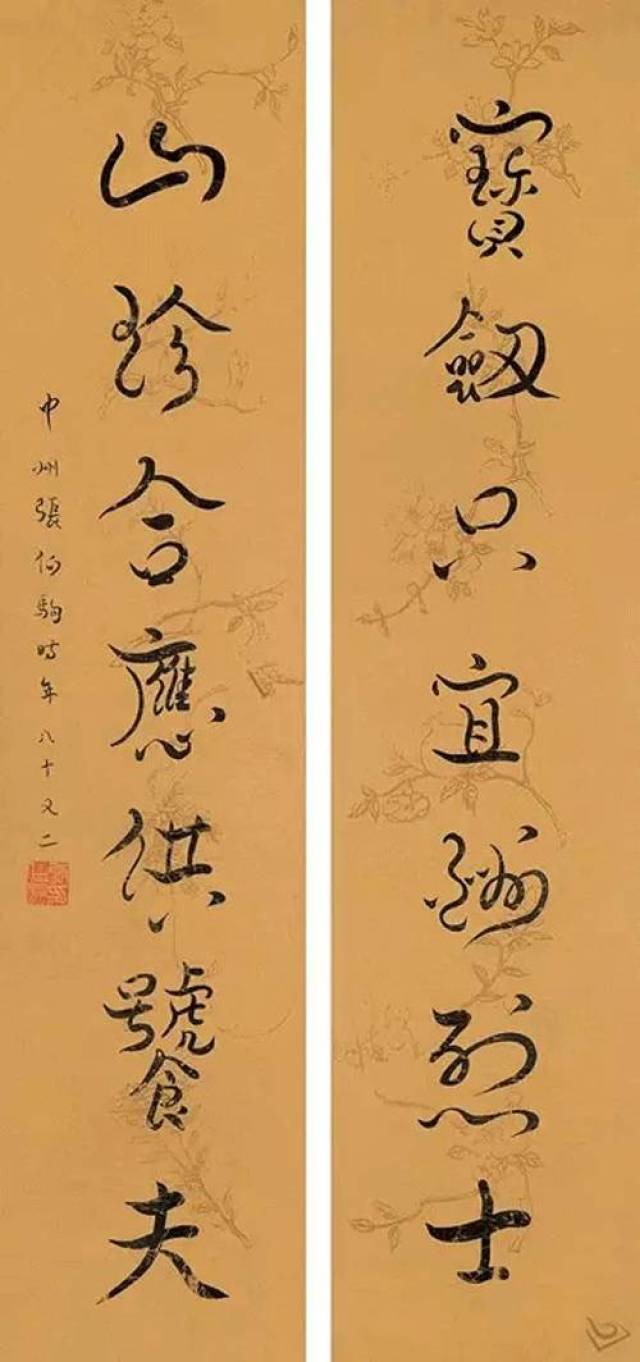 寶劒只宜酬烈士
山珍合應供饕夫
中州張伯駒時年八十又二